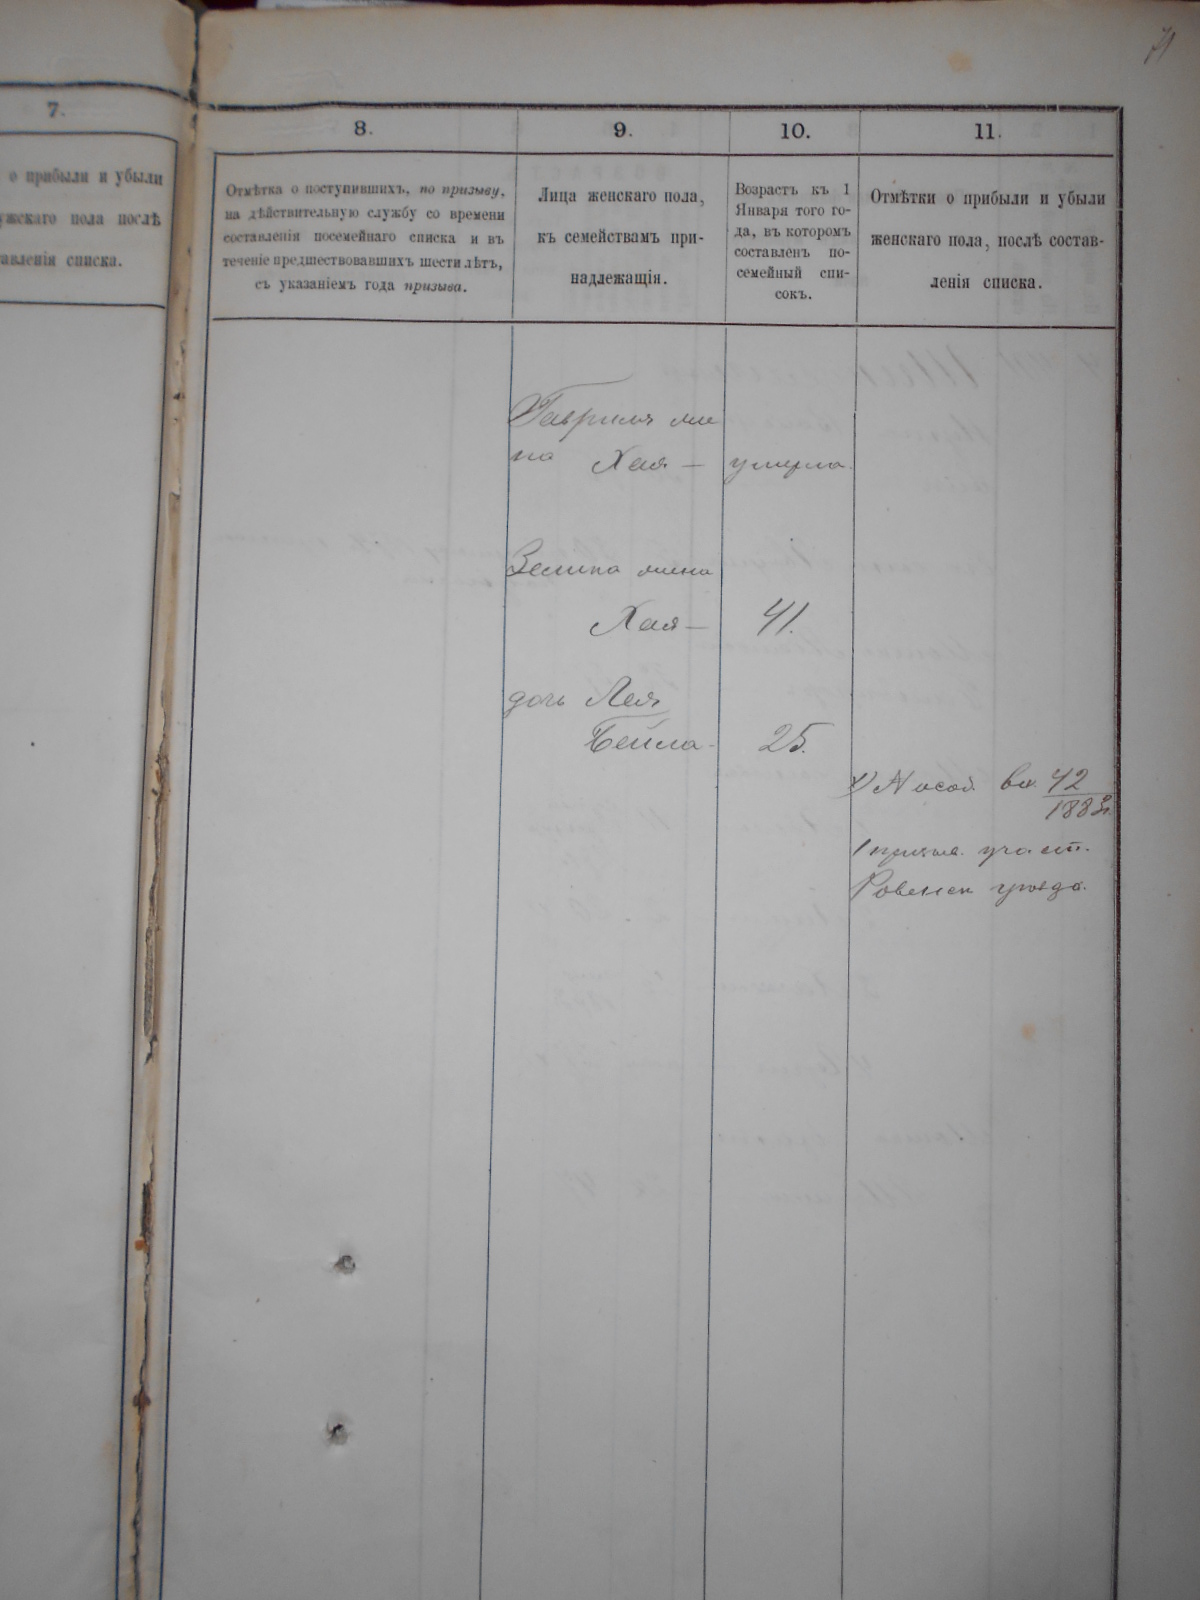 71
7.
о прибыли и убыли
ужскаго пола послѣ
авленія списка.
8.
Отмѣтка о поступившихъ, по призыву,
на дѣйствительную службу со времени
составленія посемейнаго списка и въ
теченіе предшествовавшихъ шести лѣтъ,
съ указаніемъ года призыва.
9.
Лица женскаго пола,
къ семействамъ при-
надлежащія.
10.
Возрастъ къ 1
Января того го-
да, въ которомъ
составленъ по-
семейный спи-
сокъ.
11.
Отмѣтки о прибыли и убыли
женскаго пола, послѣ состав-
ленія списка.
Гаврила
Хая — умерла.
Зелика жена
Хая — 41.
дочь Лея
Бейла. 25.
42
1883
участ.
Ровенск уѣзда.